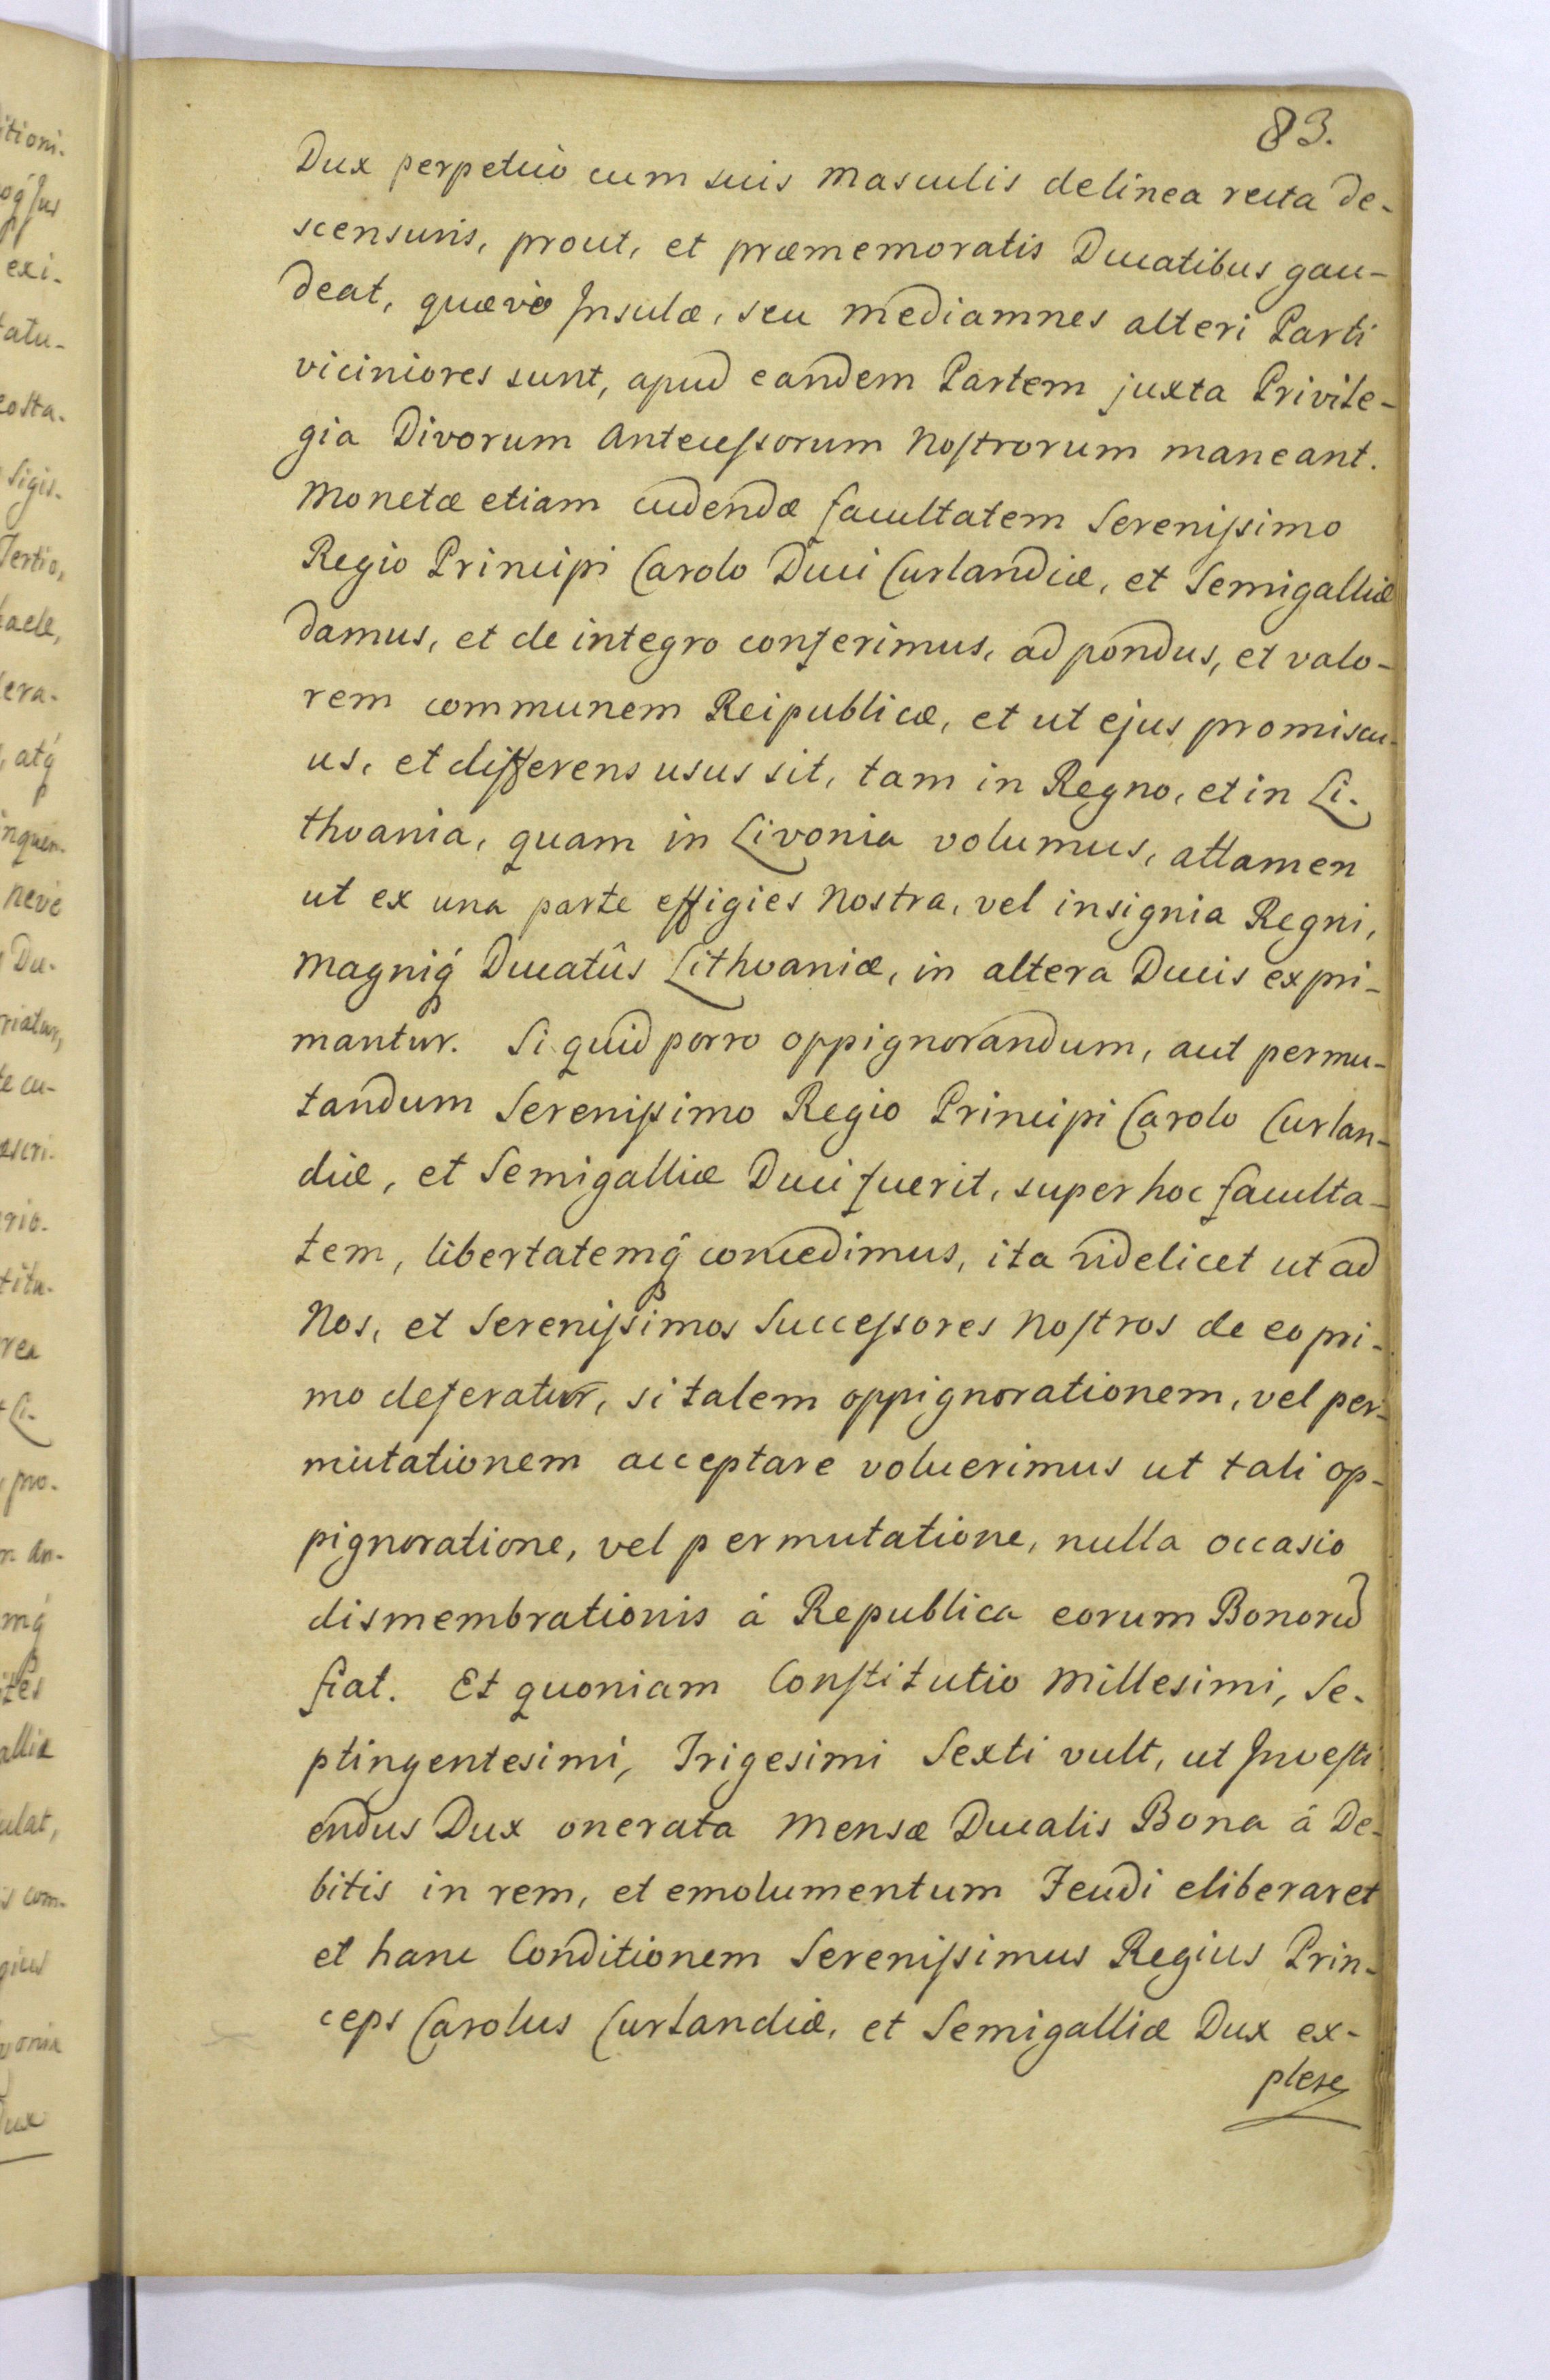 83.
Dux perpetuò cum suis Masculis de linea recta de-
scensuris, prout, et præmemoratis Ducatibus gau-
deat, quævè Insulæ, seu mediamnes alteri Parti
viciniores sunt, apud eandem Partem juxta Privile-
gia Divorum Antecessorum Nostrorum maneant.
Monetæ etiam cudendæ facultatem Serenissimo
Regio Principi Carolo Duci Curlandiæ, et Semigalliæ
damus, et de integro conferimus, ad pondus, et valo-
rem communem Reipublicæ, et ut ejus promiscu-
us, et differens usus sit, tam in Regno, et in Li-
thvania, quam in Livonia volumus, attamen
ut ex una parte effigies Nostra, vel insignia Regni,
Magniq́ Ducatûs Lithvaniæ, in altera Ducis expri-
mantur. Si quid porro oppignorandum, aut permu-
tandum Serenissimo Regio Principi Carolo Curlan-
diæ, et Semigalliæ Duci fuerit, super hoc faculta-
tem, libertatemq́ concedimus, ita videlicet ut ad
Nos, et Serenissimos Successores Nostros de eo pri-
mo deferatur, si talem oppignorationem, vel per-
mutationem acceptare voluerimus ut tali op-
pignoratione, vel permutatione, nulla occasio
dismembrationis á Republica eorum Bonorũ
fiat. Et quoniam Constitutio Millesimi, Se-
ptingentesimi, Trigesimi Sexti vult, ut Investi
endus Dux onerata Mensæ Ducalis Bona á De-
bitis in rem, et emolumentum Feudi eliberaret
et hanc Conditionem Serenissimus Regius Prin-
ceps Carolus Curlandiæ, et Semigalliæ Dux ex-
plere